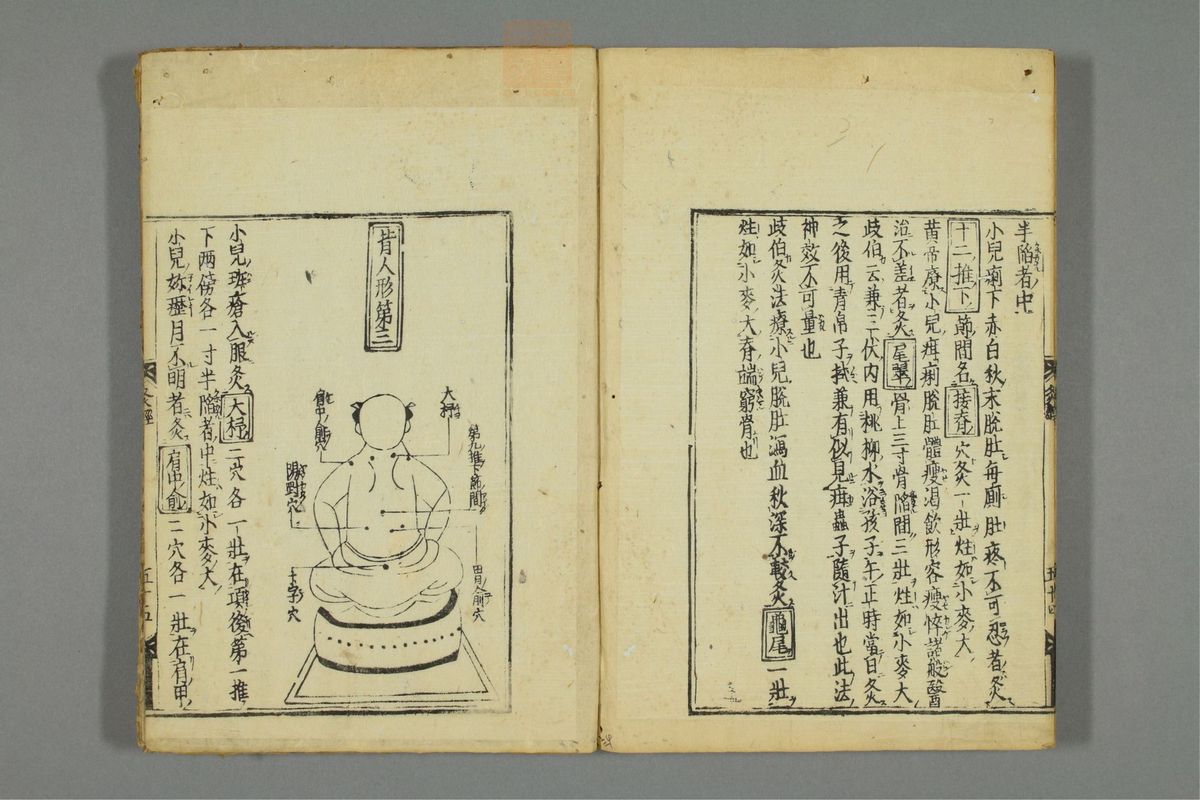 半陷者中
小兒痢下赤白秋末脫肛每廁肚疼不可忍者灸
十二推下節間名接脊穴灸一壯炷如小麥大
黃帝療小兒疳痢脫肛體瘦渴飲形容瘦悴諸般醫
治不差者灸尾翠骨上三寸骨陷間三壯炷如小麥大
歧伯云兼三伏內用桃柳水浴孩子午正時當日灸
之後用青帛子拭兼有似見疳蟲子隨汁出也此法
神效不可量也
歧伯灸法療小兒脫肛瀉血秋深不較灸龜尾一壯
炷如小麥大脊端窮骨也
灸經
背人形第三
大杼
第九推下節間
胃俞穴
十字穴
小兒斑瘡入眼灸大杼二穴各一壯在項後第一推
下兩傍各一寸半陷者中炷如小麥大
小兒歷月不明者灸肩中俞二穴各一壯在肩甲
灸經
五十五